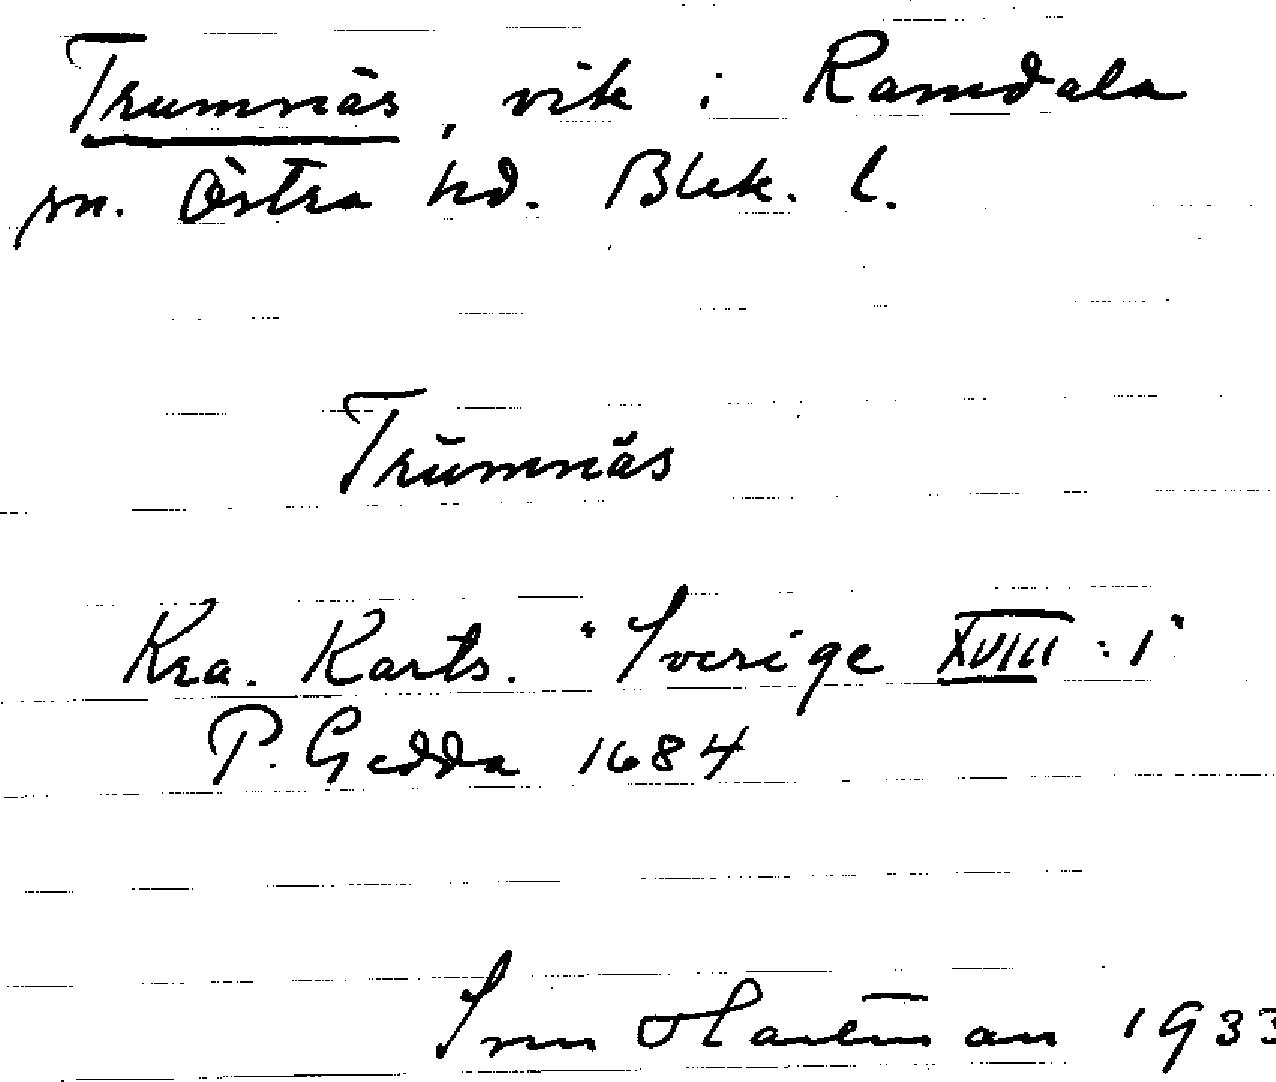 Trumnäs, vik i Ramdala
sn. Östra hd. Blek. l.
Trŭmnäs
Kra. Karts. "Sverige XVIII : 1"
P. Gedda 1684
Sven Hartman 1933